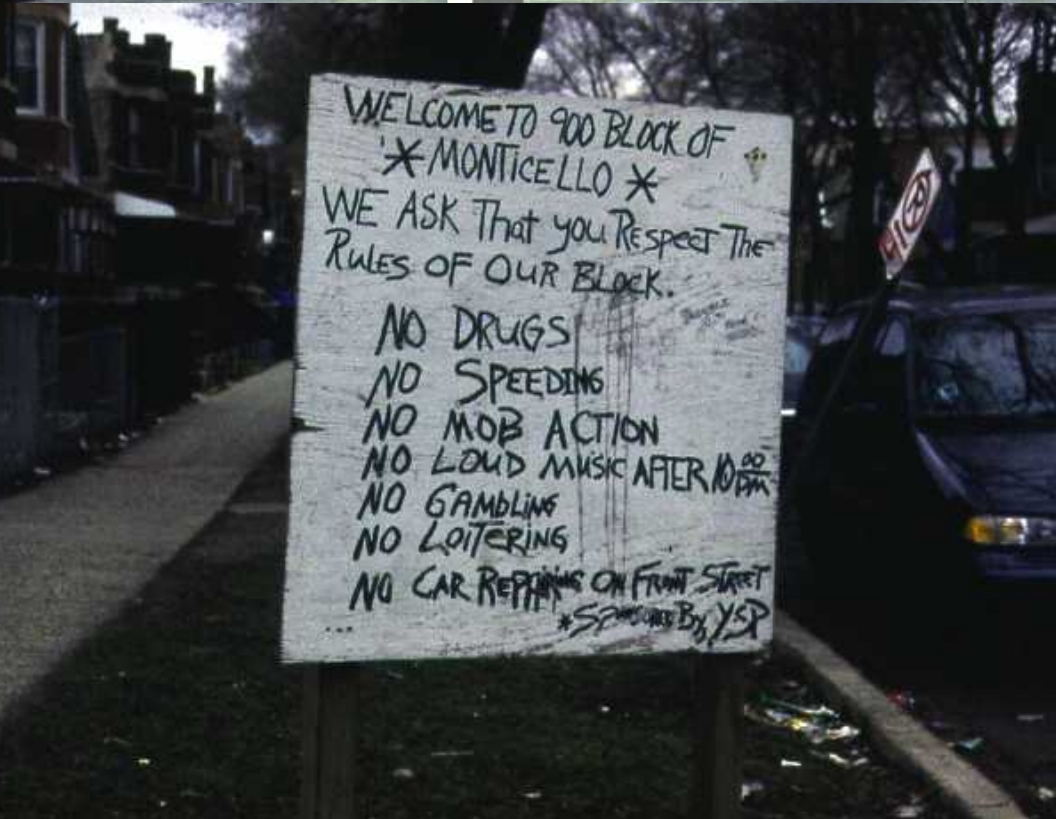 WELCOME TO 900 BLOCK OF
* MONTICELLO *
WE ASK That you RESPECT The
RULES OF OUR BLOCK.
NO DRUGS
NO SPEEDING
NO MOB ACTION
NO LOUD MUSIC AFTER 10 00 PM
NO GAMBLING
NO LOITERING
NO CAR REPAIRING ON FRONT STREET
* By YSP